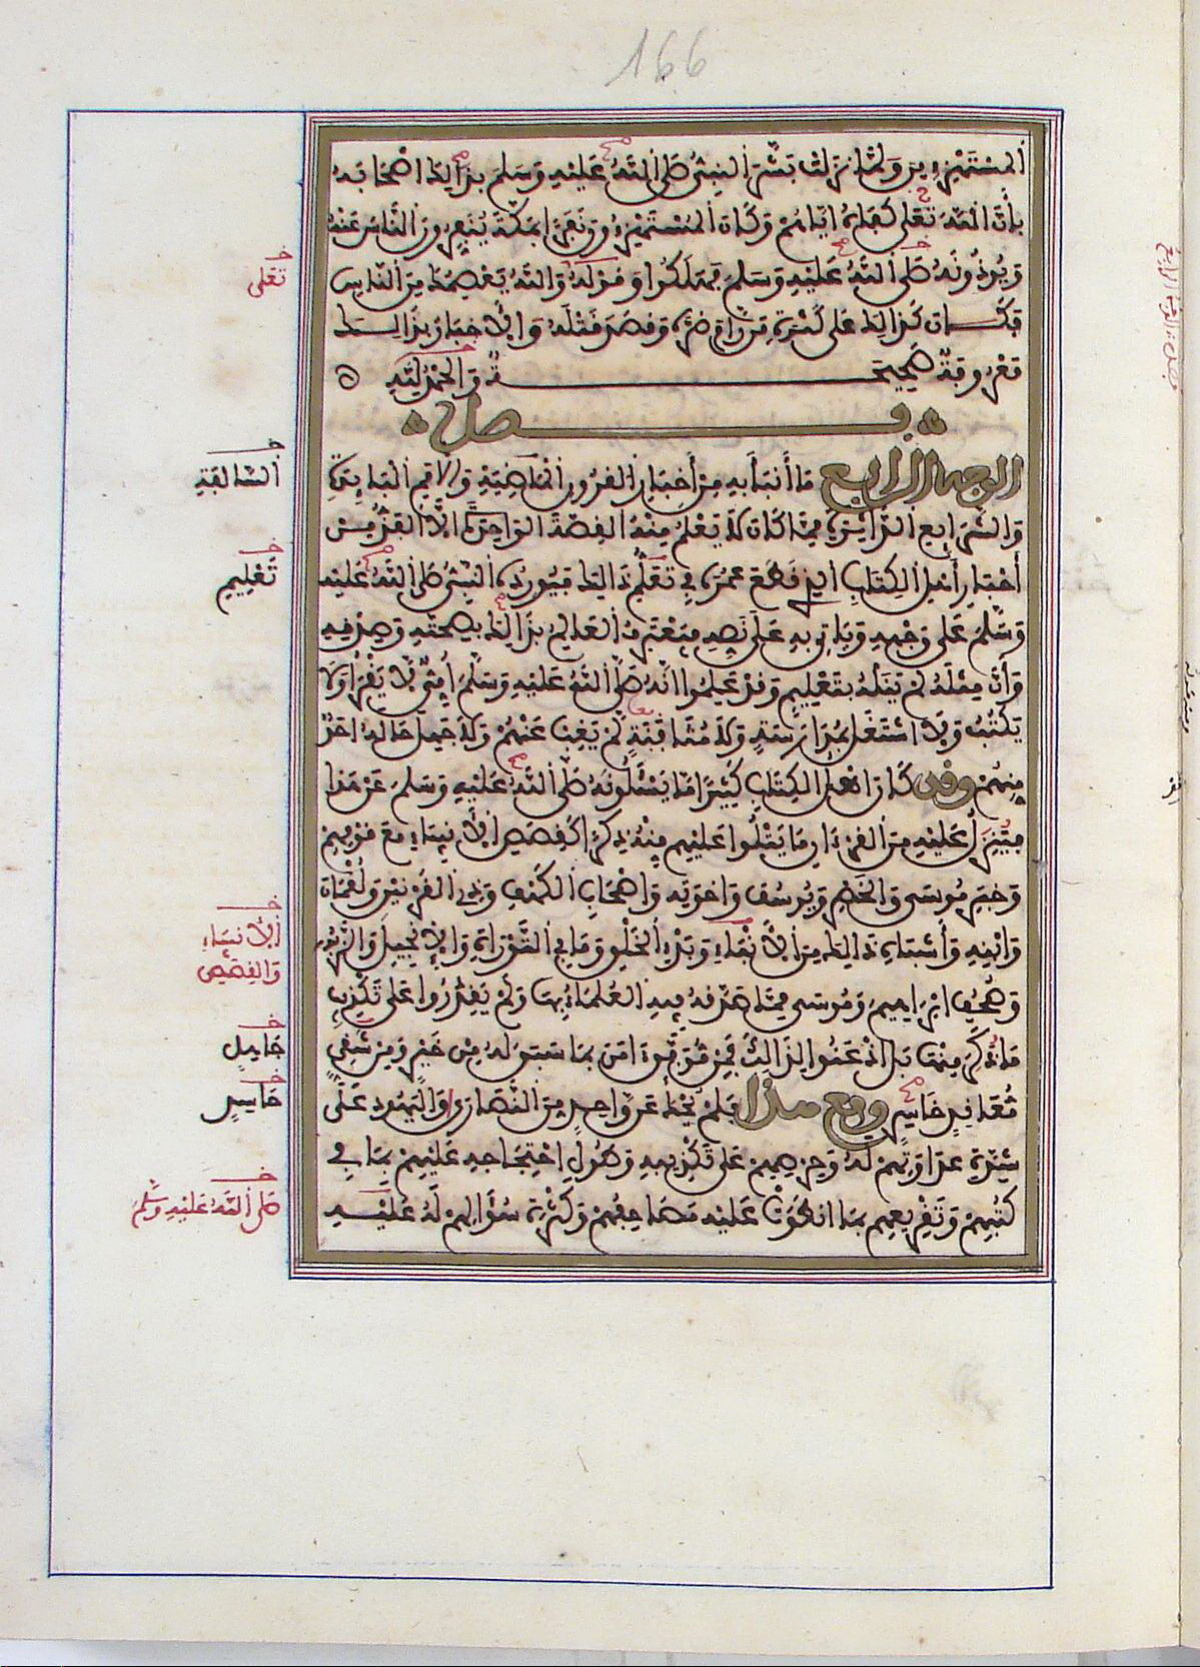 166
المستهزءين ولما نزلت بشر النبي صلى الله عليه وسلم بذالك اصحابه
بأن الله تعلى كفاه اياهم وكان المستهزءون نفرا بمكة ينفرون الناس عنه
ويوذونه صلى الله عليه وسلم فهلكوا وقوله والله يعصمك من الناس
فكان كذالك على كثرة من رام ضره وقصد قتله والاخبار بذالك
معروفة صحيحة والحمد لله
فصل
الوجه الرابع ما أنبأ به من أخبار القرون الماضية والامم البايدة
والشرايع الداثرة مما كان لا يعلم منه القصة الواحدة الا الفذ من
أحبار أهل الكتاب الذي قطع عمره في تعلم ذالك فيورده النبي صلى الله عليه
وسلم على وجهه وياتي به على نصه فيعترف العالم بذالك بصحته وصدقه
وأن مثله لم ينله بتعليم وقد علموا انه صلى الله عليه وسلم أمي لا يقرأ ولا
يكتب ولا اشتغل بمدارسة ولا مثافنة لم يغب عنهم ولا جهل حاله احد
منهم وقد كان اهل الكتاب كثيرا ما يسئلونه صلى الله عليه وسلم عن هذا
فينزل عليه من القرءان ما يتلوا عليهم منه ذكرا كقصص الأنبياء مع قومهم
وخبر موسى والخضر ويوسف واخوته واصحاب الكهف وذي القرنين ولقمان
وابنه وأشباه ذالك من الأنباء وبدء الخلق وما في التوراة والإنجيل والزبور
وصحف ابراهيم وموسى مما صدقه فيه العلماء بها ولم يقدروا على تكذيب
ما ذكر منها بل اذعنوا لذالك فمن موفق ءامن بما سبق له من خير ومن شقي
معاند حاسد ومع هذا فلم يحك عن واحد من النصارى واليهود على
شدة عداوتهم له وحرصهم على تكذيبه وطول احتجاجه عليهم بما في
كتبهم وتقريعهم بما انطوت عليه مصاحفهم وكثرة سؤالهم له عليه
تعلى
السالفة
تعليم
الأنبياء
والقصص
حاسد
صلى الله عليه وسلم